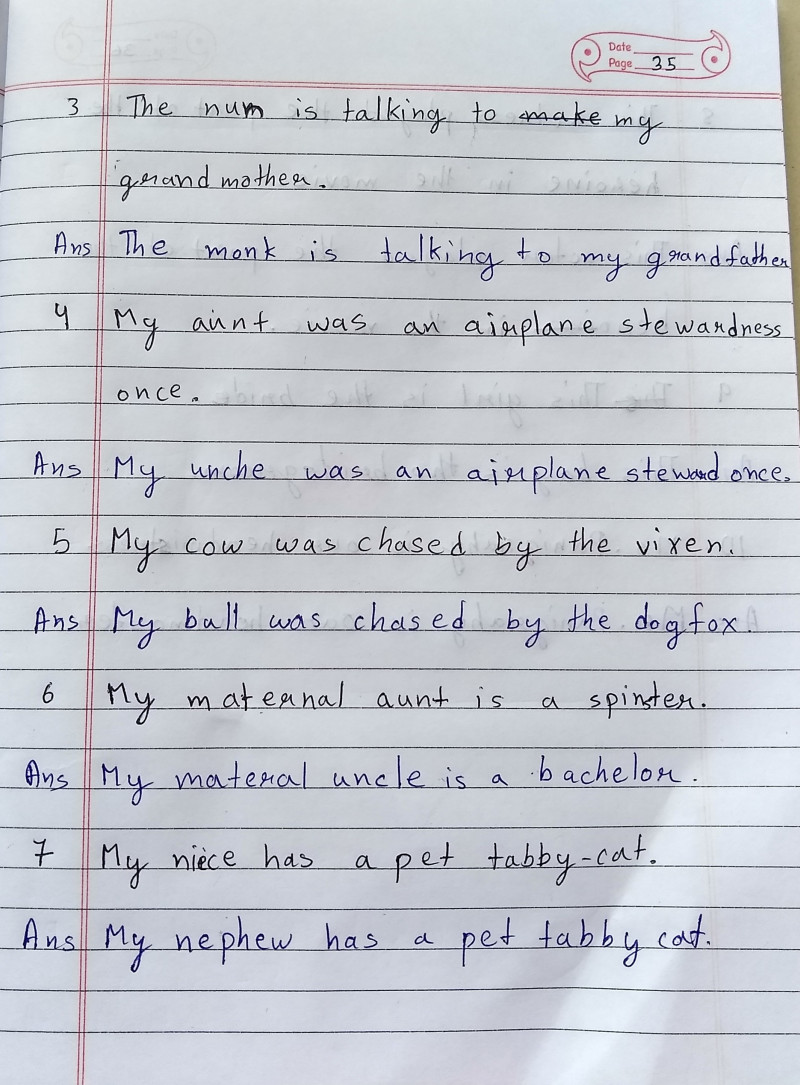 Date
Page 35
3 The num is talking to make my
grandmother.
Ans The monk is talking to my grandfather
4 My aunt was an airplane stewardness
once.
Ans My unche was an airplane steward once.
5 My cow was chased by the vixen.
Ans My ball was chased by the dogfox.
6 My maternal aunt is a spinster.
Ans My materal uncle is a bachelor.
7 My niece has a pet tabby-cat.
Ans My nephew has a pet tabby cat.